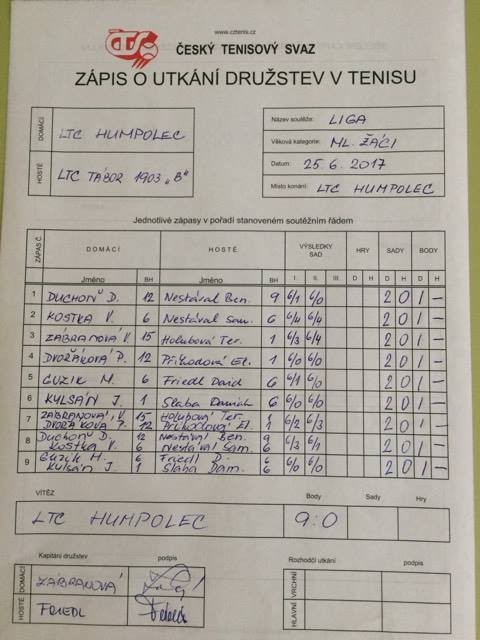 www.cztenis.cz
ČTS
ČESKÝ TENISOVÝ SVAZ
ZÁPIS O UTKÁNÍ DRUŽSTEV V TENISU
DOMÁCÍ LTC HUMPOLEC
HOSTÉ LTC TÁBOR 1903 „B"
Název soutěže: LIGA
Věková kategorie: ML. ŽÁCI
Datum: 25.6.2017
Místo konání: LTC HUMPOLEC
Jednotlivé zápasy v pořadí stanoveném soutěžním řádem
ZÁPAS Č. DOMÁCÍ HOSTÉ VÝSLEDKY SAD HRY SADY BODY
Jméno BH Jméno BH I. II. III. D H D H D H
1 DUCHOŇ D. 12 Nestával Ben. 9 6/1 6/0 2 0 1 –
2 KOSTKA V. 6 Nestával Sam. 6 6/4 6/4 2 0 1 –
3 ZÁBRANOVÁ V. 15 Holubová Ter. 1 6/3 6/4 2 0 1 –
4 DVOŘÁKOVÁ P. 12 Příhodová El. 1 6/0 6/0 2 0 1 –
5 GUZIK M. 6 Friedl David 6 6/1 6/0 2 0 1 –
6 KULSÁN J. 1 Slaba Dominik 6 6/0 6/0 2 0 1 –
7 ZÁBRANOVÁ V. 15 Holubová Ter. 1 6/2 6/3 2 0 1 –
DVOŘÁKOVÁ P. 12 Příhodová El. 1
8 Duchoň D. 12 Nestával Ben. 9 6/3 6/1 2 0 1 –
Kostka V. 6 Nestával Sam. 6
9 Guzik M. 6 Friedl D. 6 6/0 6/0 2 0 1 –
Kulsán J. 1 Slaba Dom. 6
VÍTĚZ Body Sady Hry
LTC HUMPOLEC 9:0
Kapitáni družstev podpis
DOMÁCÍ ZÁBRANOVÁ
HOSTÉ FRIEDL
Rozhodčí utkání podpis
VRCHNÍ
HLAVNÍ